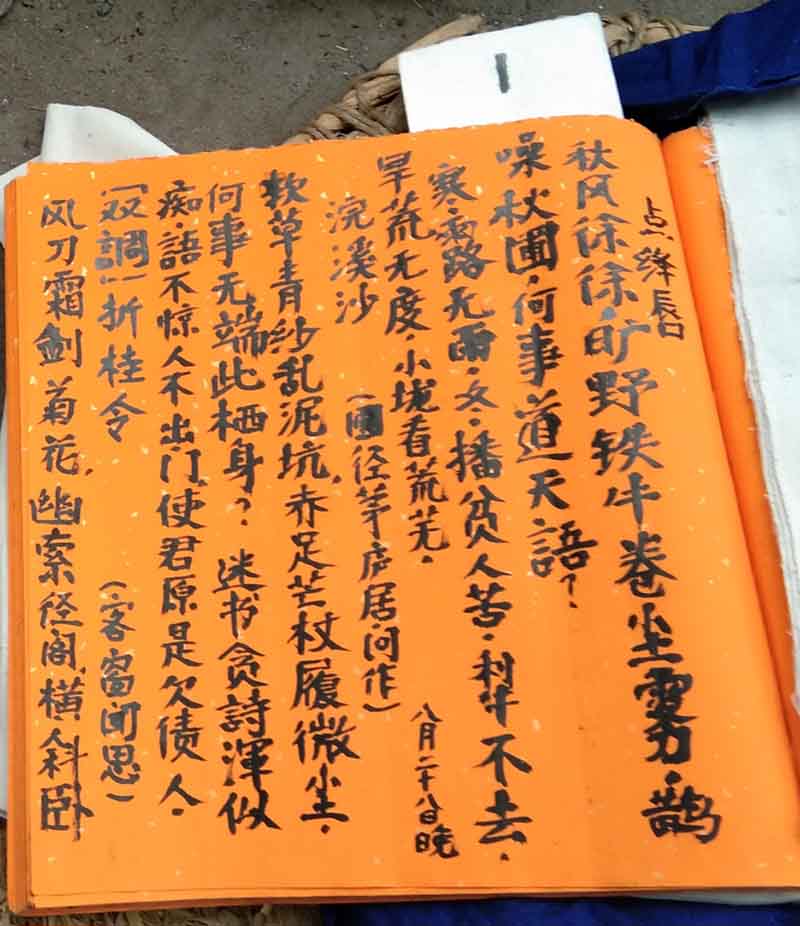 1
点绛唇
秋风徐徐。旷野铁牛卷尘雾。鹊
噪秋圃。何事道天语？
寒露无雨。冬播贫人苦。犁牛不去。
旱荒无度。小境看荒芜。
八月二十八日晚
浣溪沙 （圃径茅庐居间作）
软草青纱乱泥坑，赤足芒杖履微尘。
何事无端此栖身？ 迷书贪詩浑似
痴。語不惊人不出门，使君原是欠债人。
〔双調〕折桂令 （客窗闲思）
风刀霜劍菊花，幽索径阁，横斜卧